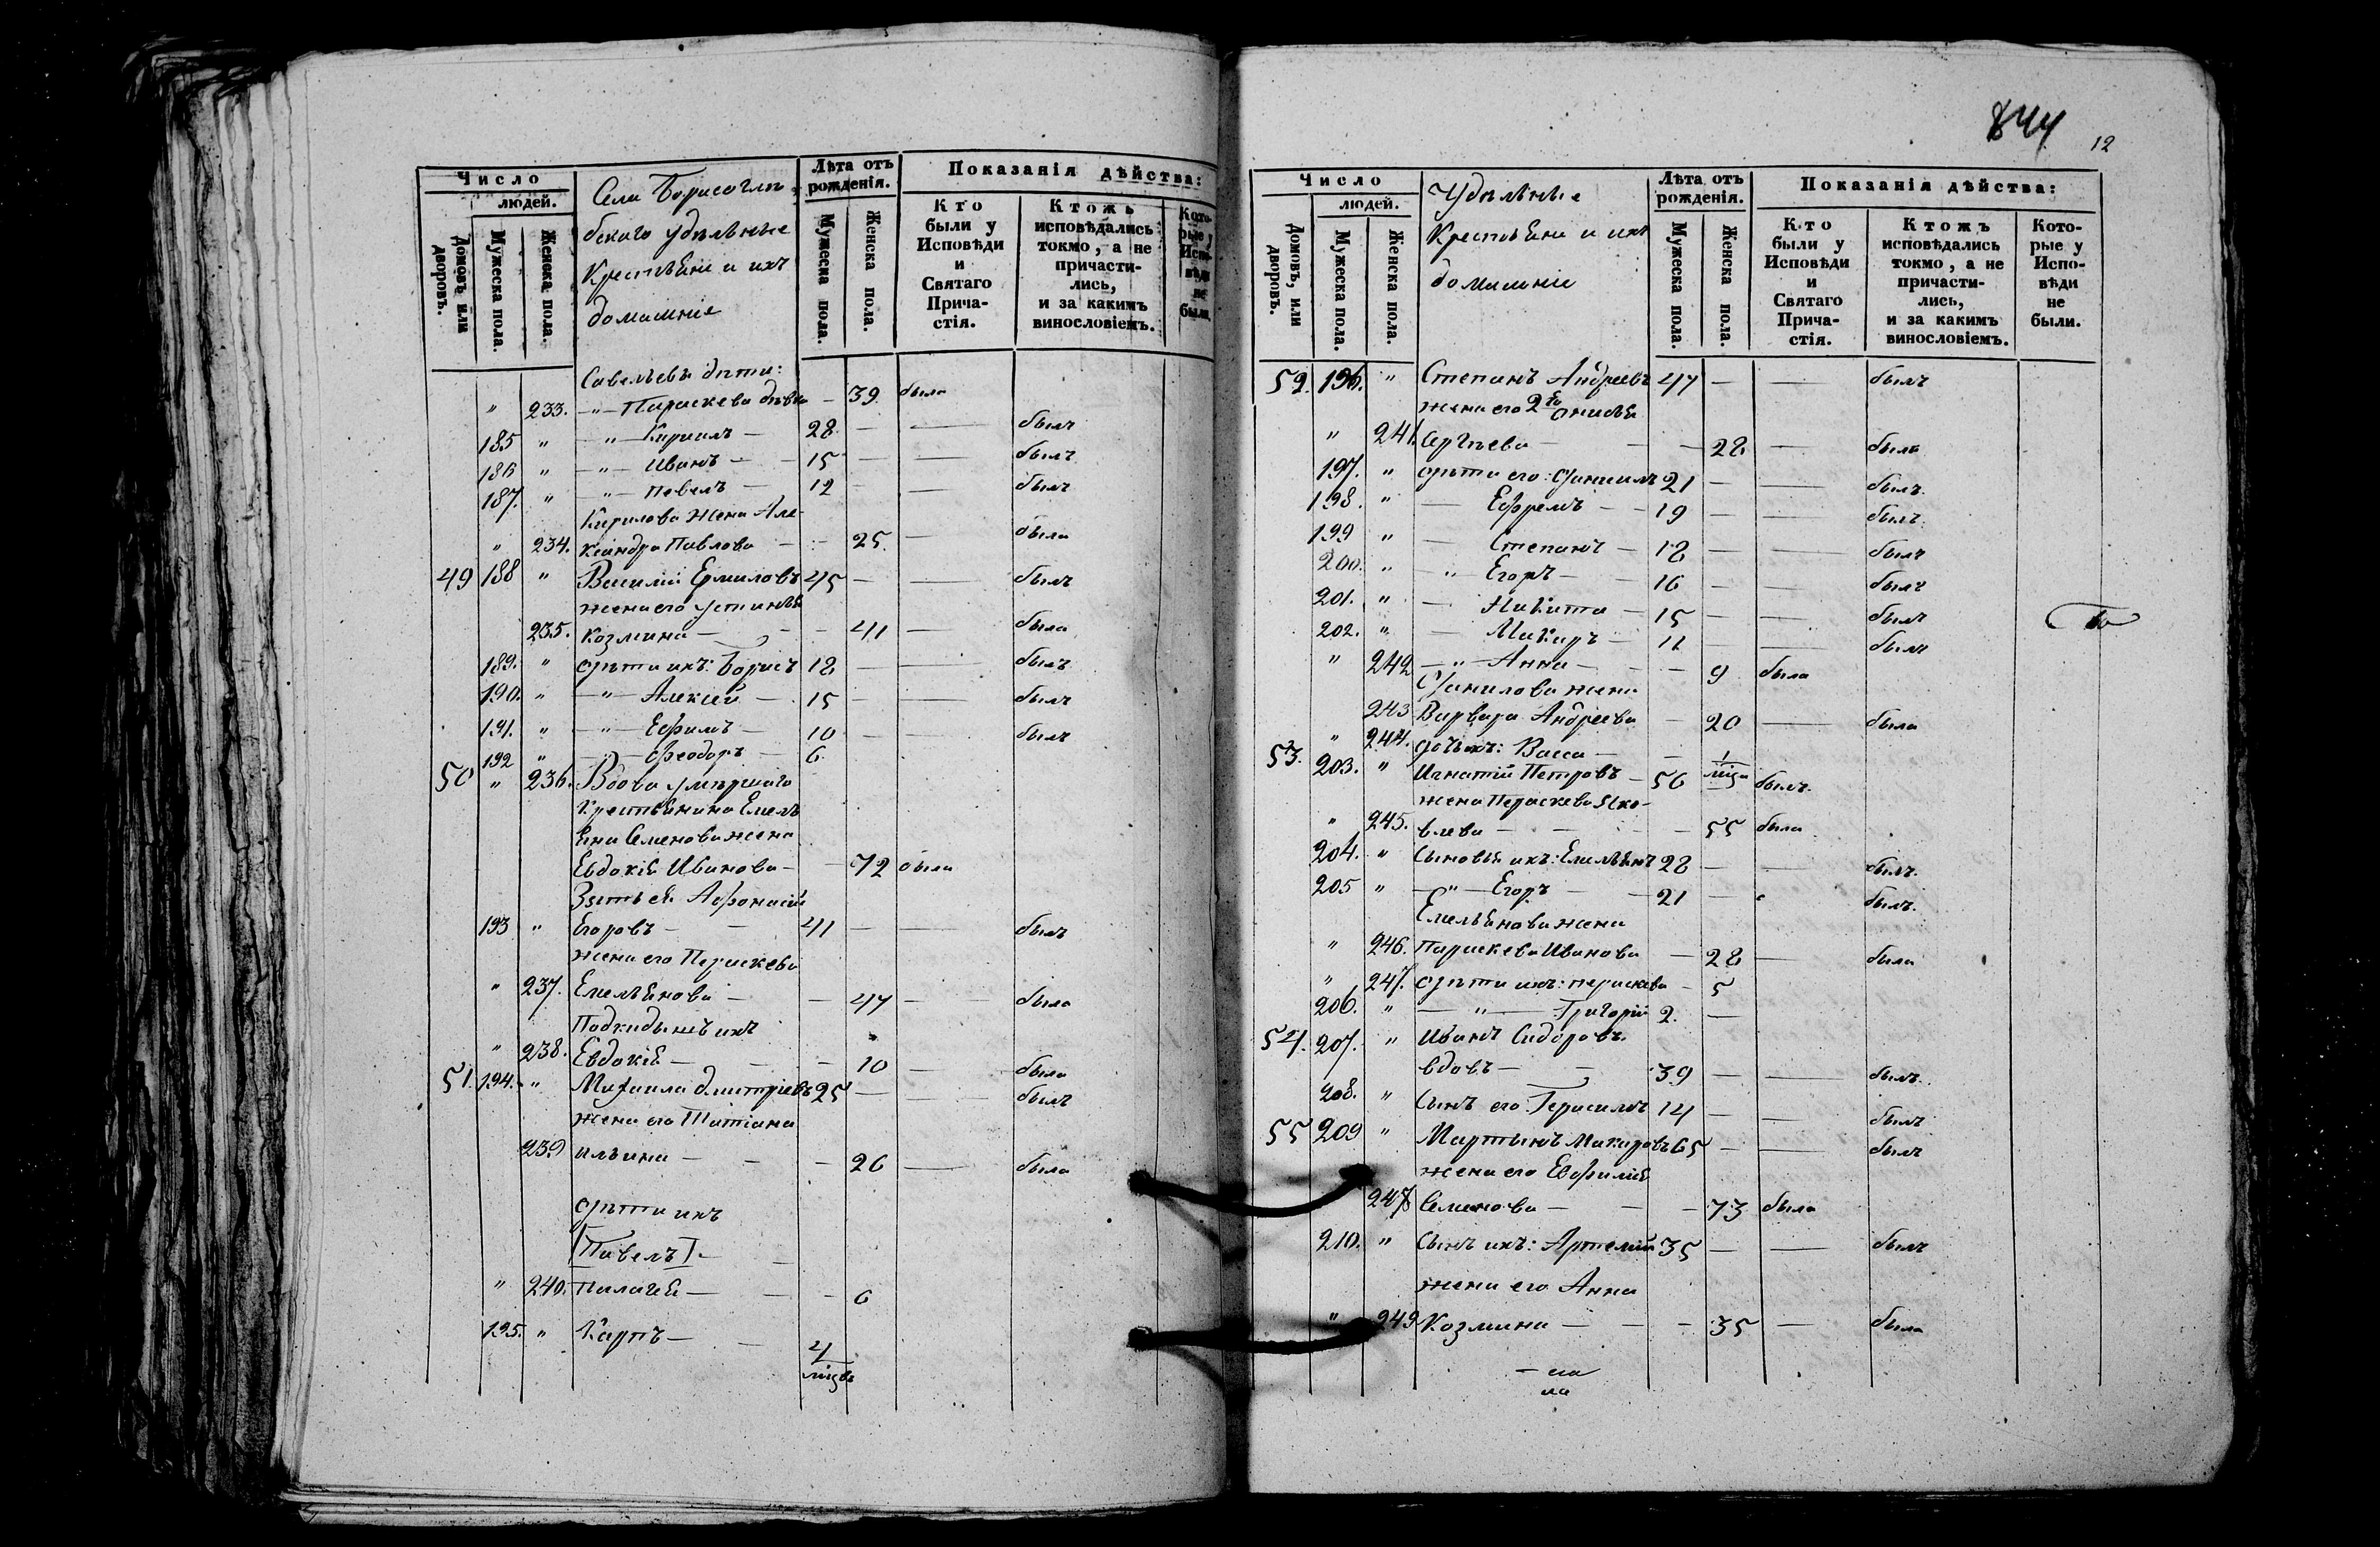 Число
людей.
Домовъ или дворовъ.
Мужеска пола.
Женска пола.
Села Борисоглѣ-
бскаго удѣльные
Крестьяни и ихъ
домашніе
Лѣта отъ рожденія.
Мужеска пола.
Женска пола.
Показанія дѣйства:
Кто были у Исповѣди и Святаго Прича-стія.
Ктожъ исповѣдались токмо, а не причасти-лись, и за какимъ винословіемъ.
Кото-рые у Испо-вѣди не были.
Савельевы дѣти:
" 233. -"- Параскева дѣвка - 39 была
185 " -"- Кирилъ - 28 - — былъ
186 " -"- Иванъ - 15 - — былъ
187. " -"- Павелъ - 12 - — былъ
Кирилова жена Але-
" 234. ксандра Павлова - 25. — была
49 188 " Василій Ермиловъ 45 - — былъ
жена его Устинья
235. Козмина - - 41 — была
189. " дѣти ихъ: Борисъ 18 - — былъ
190. " -"- Алексій - 15 - — былъ
191. " -"- Ефимъ - 10 - — былъ
192 " -"- Феодоръ - 6
50 " 236. Вдова умершаго
Крестьянина Емель
яна Семенова жена
Евдокія Иванова - - 72 была
Зять ея Афонасій
193 " Егоровъ - - 41 - — былъ
жена его Пераскева
" 237. Емельянова - - 47 — была
Подкидышъ ихъ
" 238. Евдокія - - 10 — была
51. 194. " Михаила Дмитріевъ 25 - — былъ
жена его Татіана
239 ильина - - - 26 — была
дѣти ихъ
[Павелъ]. -
" 240. Палагея - - - 6
195. " Карпъ - - 4
мѣсяц
844
12
Число
людей.
Домовъ, или дворовъ.
Мужеска пола.
Женска пола.
Удѣльные
Крестьяни и ихъ
домашніе
Лѣта отъ рожденія.
Мужеска пола.
Женска пола.
Показанія дѣйства:
Кто были у Исповѣди и Святаго Прича-стія.
Ктожъ исповѣдались токмо, а не причасти-лись, и за какимъ винословіемъ.
Кото-рые у Испо-вѣди не были.
52. 196. " Степанъ Андреевъ 47 - — былъ
жена его 2я
" 241. Сергѣева - - - 28 — была
197. " дѣти его: Даніилъ 21 - — былъ
198. " — Ефремъ - 19 - — былъ
199 " — Степанъ - 18 - — былъ
200. " -"- Егоръ - 16 - — былъ
201. " - Никита - 15 - — былъ
202. " - Макаръ - 11 - — былъ
" 242 -"- Анна - - 9 была
Данилова жена
243 Варвара Андреева - 20 — была
" 244. дочь ихъ: Васса - - 1
53. 203. " Игнатій Петровъ - 56 былъ
жена Пераскева Яко-
" 245. влева - - - 55 была
204. " Сыновья ихъ: Емельянъ 28 - — былъ.
205 " -"- Егоръ - 21 - былъ.
Емельянова жена
" 246. Параскева Иванова - 28 — была
" 247. дѣти ихъ: пераскева - 5
206. " -"- Григорій 2. -
54. 207. " Иванъ Сидоровъ.
вдовъ - - 39 - — былъ.
208. " Сынъ его: Герасимъ 14 - — былъ
55 209 " Мартынъ Макаровъ 65 - — былъ
жена его Евфимія
248 Семенова - - - 73 была
210. " Сынъ ихъ: Артемій 35 - — былъ
жена его Анна
" 249 Козмина - - - 35 — была